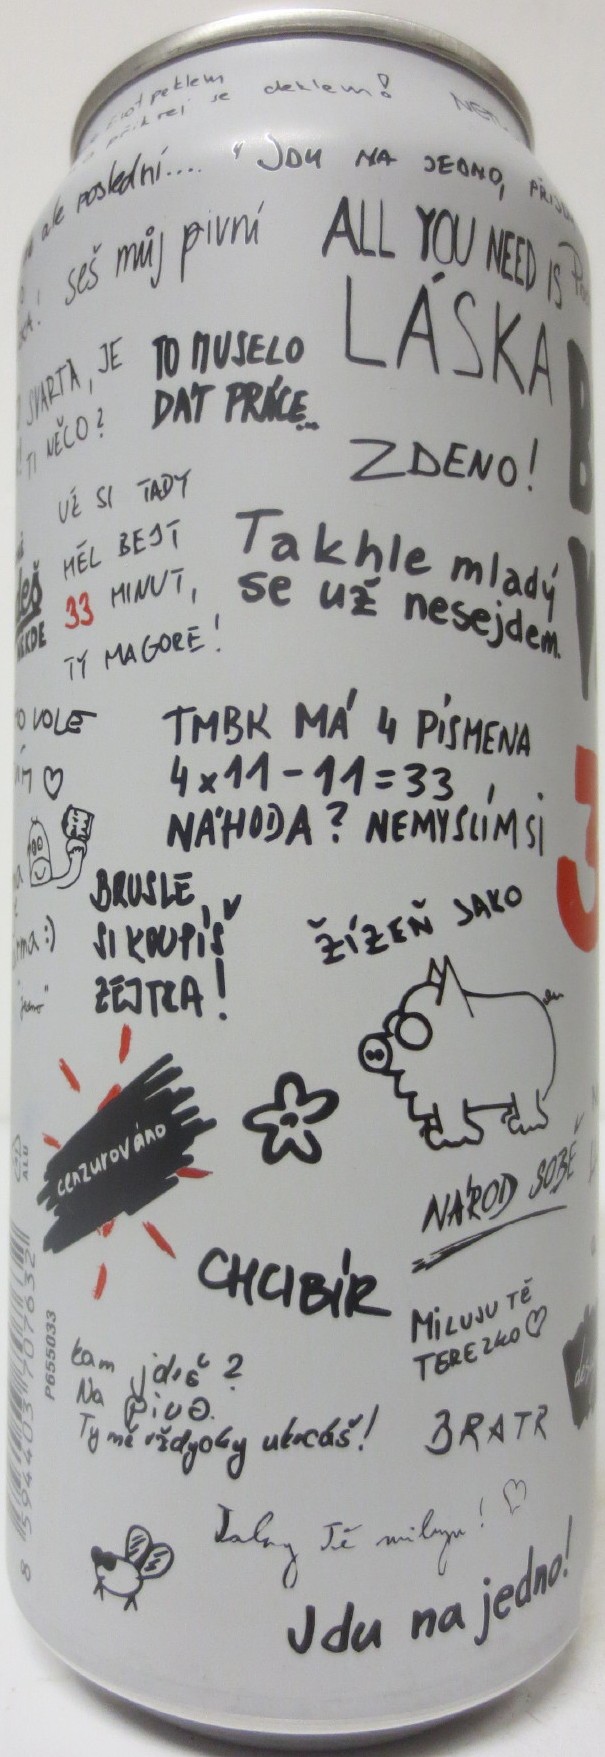 peklem
přikrej se deklem!
ale poslední.... "JDU NA JEDNO,
seš můj pivní
ALL YOU NEED IS
LÁSKA
SVARTA, JE
TI NĚCO?
TO MUSELO
DÁT PRÁCE...
ZDENO!
UŽ SI TADY
MĚL BEJT
33 MINUT,
TY MAGORE!
Takhle mladý
se už nesejdem.
VOLE
TMBK MÁ 4 PÍSMENA
4x11-11=33
NÁHODA? NEMYSLÍM SI
BRUSLE
SI KOUPÍŠ
ZEJTRA!
ŽÍZEŇ JAKO
cenzurováno
NÁROD SOBĚ
CHCIBÍR
MILUJU TĚ
TEREZKO
Kam jdeš?
Na pivo.
Ty mě vždycky utečeš!
BRATR
Tě miluju!
Jdu na jedno!
ALU
8594403707632
P655033
B
V
3